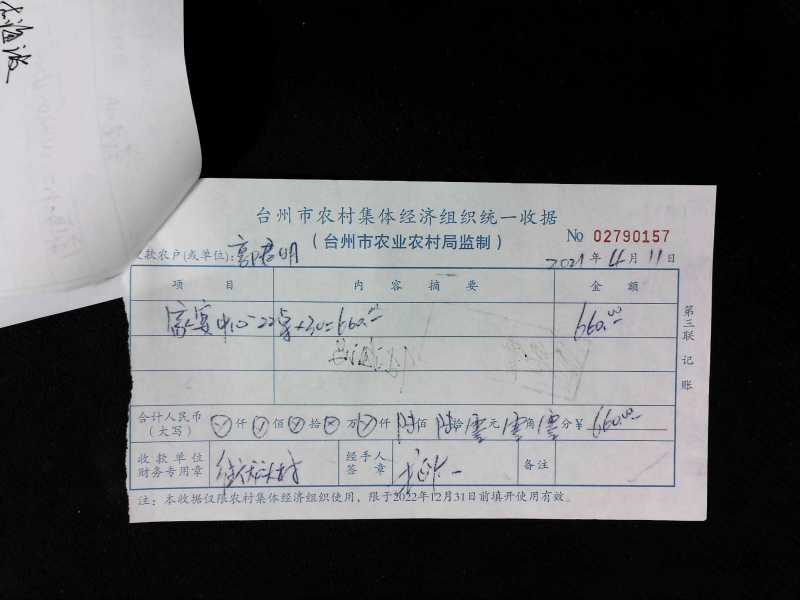 台州市农村集体经济组织统一收据
(台州市农业农村局监制)
No 02790157
款农户(或单位):郭 明
2021年4月11日
项目 内容摘要 金额
家宴中心 22桌×30=660.00 660.00
第三联 记账
合计人民币(大写) 仟 佰 拾 万 仟 陆佰 陆拾 零元 零角 零分 ¥ 660.00
收款单位财务专用章
经手人签章
备注
注:本收据仅限农村集体经济组织使用,限于2022年12月31日前填开使用有效。